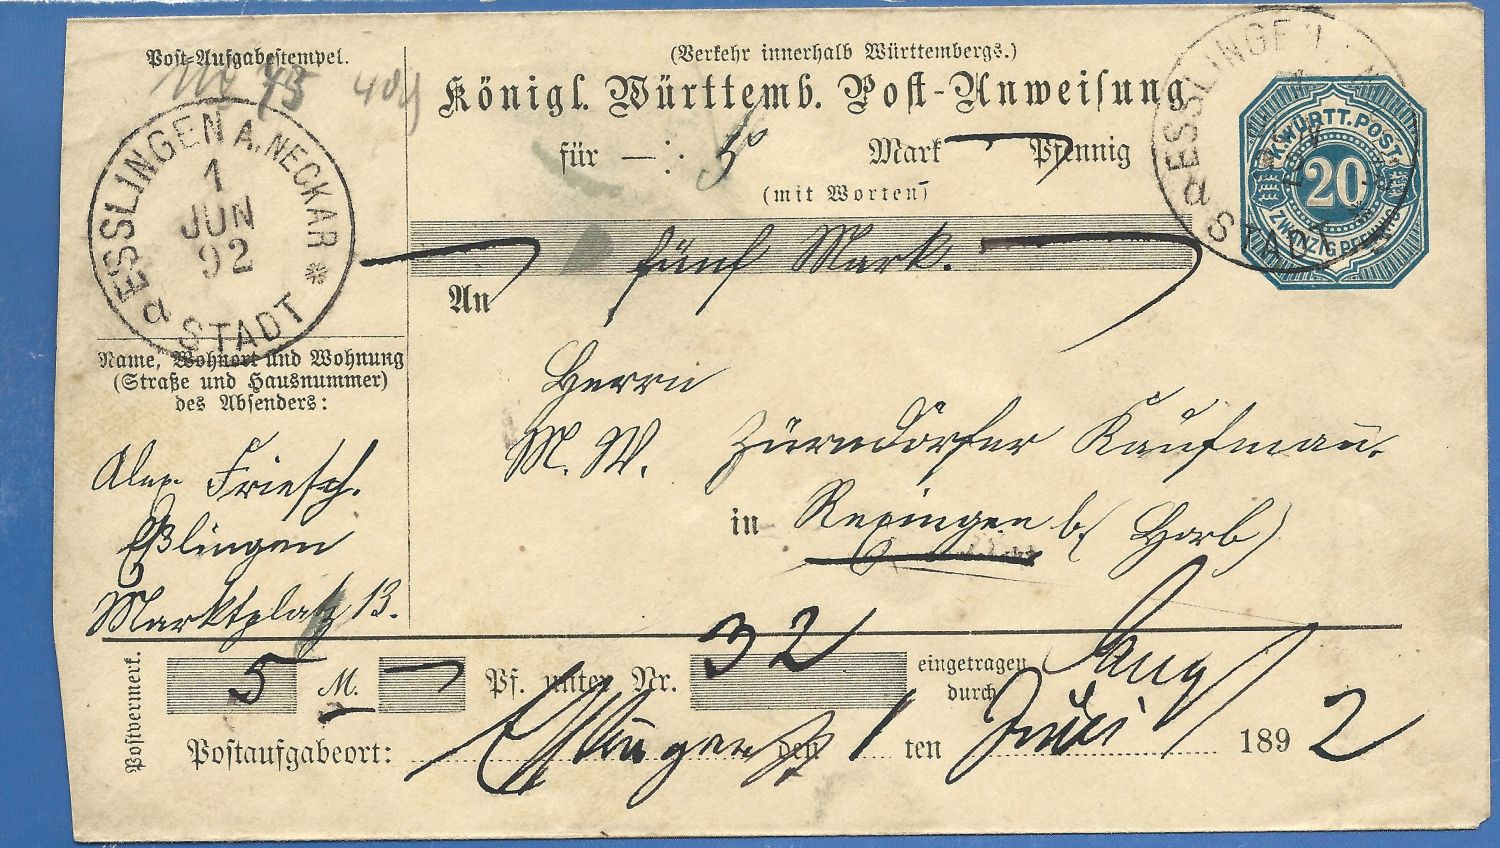 Post-Aufgabestempel.
No 43
ESSLINGEN A. NECKAR
1
JUN
92
a STADT
(Verkehr innerhalb Württembergs.)
Königl. Württemb. Post-Anweisung
für — : 5 Mark — Pfennig
(mit Worten)
fünf Mark.
ESSLINGEN
a STADT
K. WÜRTT. POST
20
ZWANZIG PFENNIG
An
Herrn
M. W. Zürndorfer Kaufmañ.
in Rexingen b/ Horb)
Name, Wohnort und Wohnung
(Straße und Hausnummer)
des Absenders:
Alex. Friesch.
Eßlingen
Marktplatz 13.
Postvermerk.
5 M. — Pf. unter Nr. 32 eingetragen
durch
Postaufgabeort: Esslingen den 1 ten Juni 1892